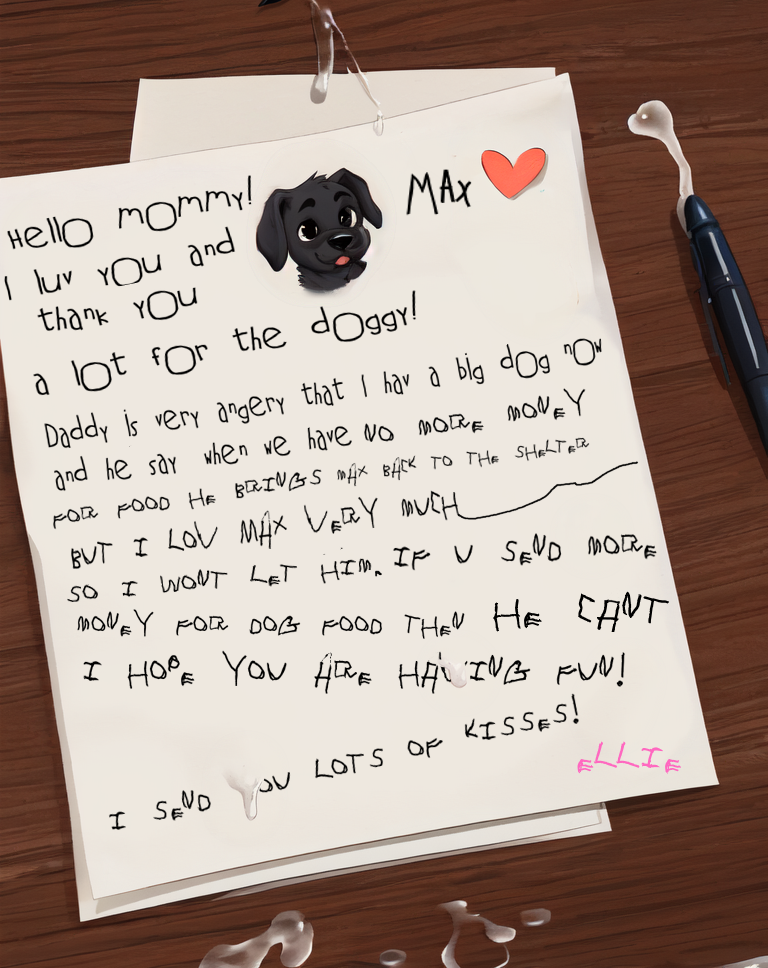 Hello mommy!
MAx
I luv you and
thank you
a lot for the doggy!
Daddy is very angery that I hav a big dog now
and he say when we have NO MORE MONEY
FOR FOOD HE BRINGS MAX BACK TO THE SHELTER
BUT I LOV MAX VERY MUCH
SO I WONT LET HIM. IF U SEND MORE
MONEY FOR DOG FOOD THEN HE CANT
I HOPE YOU ARE HAVING FUN!
I SEND YOU LOTS OF KISSES!
ELLIE